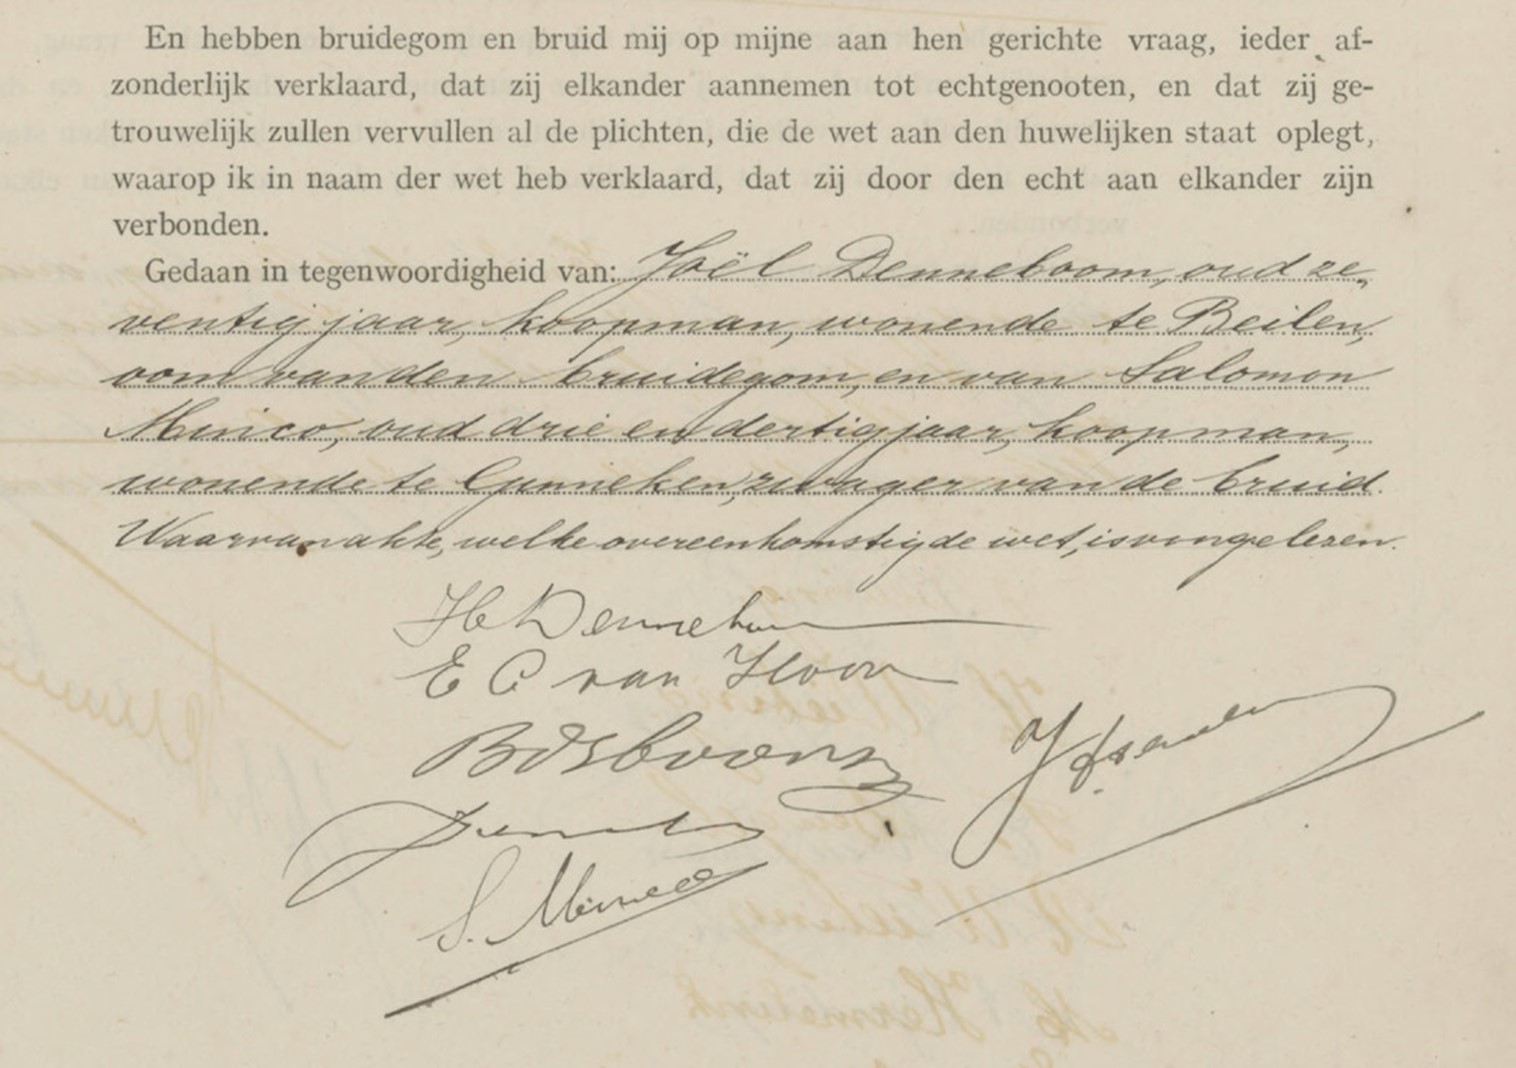 En hebben bruidegom en bruid mij op mijne aan hen gerichte vraag, ieder af-
zonderlijk verklaard, dat zij elkander aannemen tot echtgenooten, en dat zij ge-
trouwelijk zullen vervullen al de plichten, die de wet aan den huwelijken staat oplegt,
waarop ik in naam der wet heb verklaard, dat zij door den echt aan elkander zijn
verbonden.
Gedaan in tegenwoordigheid van: Joël Denneboom, oud ze,
ventig jaar, koopman, wonende te Beilen,
oom van den bruidegom, en van Salomon
Minco, oud drie en dertig jaar, koopman,
wonende te Ginneken, zwager van de bruid.
Waarvan akte, welke overeenkomstig de wet, is voorgelezen.
H Denneboom
E C van Hoorn
S. Minco